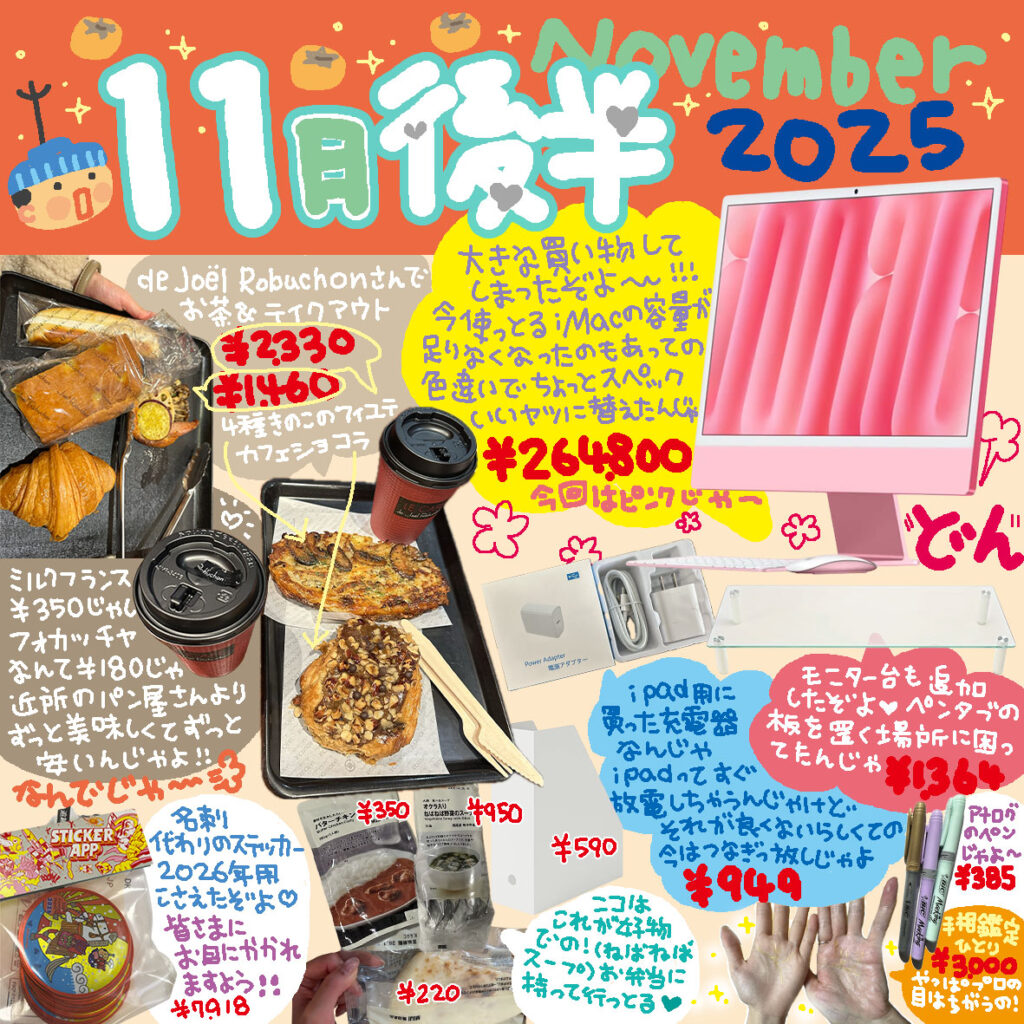 November
2025
11月後半
de Joël Robuchonさんで
お茶&テイクアウト
¥2,330
¥1,460
4種きのこのフィユテ
カフェショコラ
大きな買い物して
しまったぞよ〜!!!
今使っとるiMacの容量が
足りなくなったのもあっての
色違いでちょっとスペック
いいヤツに替えたんじゃ
¥264,800
今回はピンクじゃー
どん
ミルクフランス
¥350じゃし
フォカッチャ
なんて¥180じゃ
近所のパン屋さんより
ずっと美味しくてずっと
安いんじゃよ!!
なんでじゃ〜
Power Adapter
電源アダプター
ipad用に
買った充電器
なんじゃ
ipadってすぐ
放電しちゃうんじゃけど
それが良くないらしくての
今はつなぎっ放しじゃよ
¥949
モニター台も追加
したぞよ♥ペンタブの
板を置く場所に困っ
てたんじゃ
¥1,364
STICKER
APP
名刺
代わりのステッカー
2026年用
こさえたぞよ♡
皆さまに
お目にかかれ
ますよう!!
¥7,918
¥350
バターチキン
¥450
オクラ入り
ねばねば野菜のスープ
¥220
¥590
ニコは
これが好物
での!(ねばねば
スープ)お弁当に
持って行っとる♥
アナログ
のペン
じゃよ〜
¥385
手相鑑定
ひとり
¥3,000
やっぱプロの
目はちがうの!